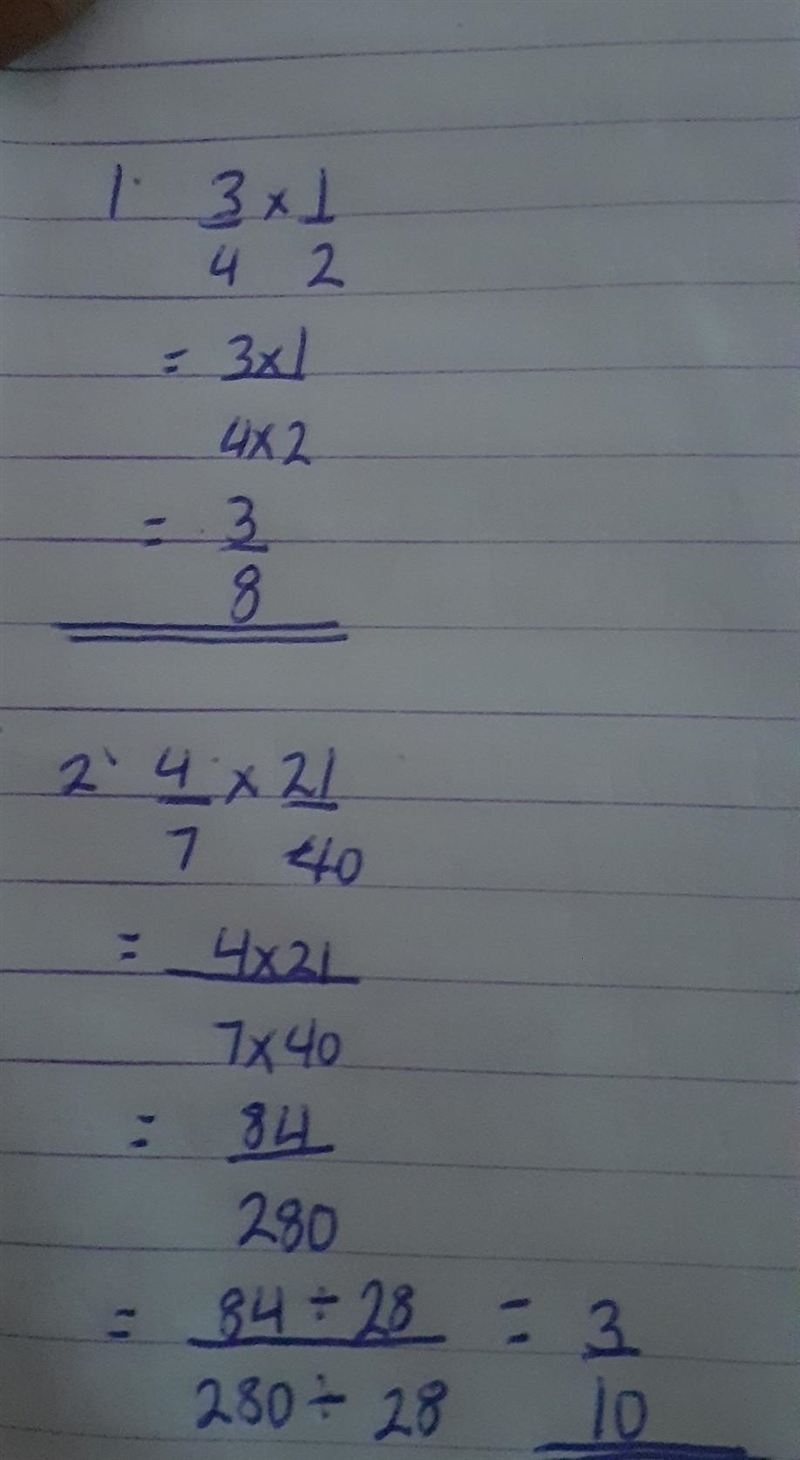 1. 3 × 1
4 2
= 3×1
4×2
= 3
8
2. 4 × 21
7 40
= 4×21
7×40
= 84
280
= 84 ÷ 28 = 3
280 ÷ 28 10